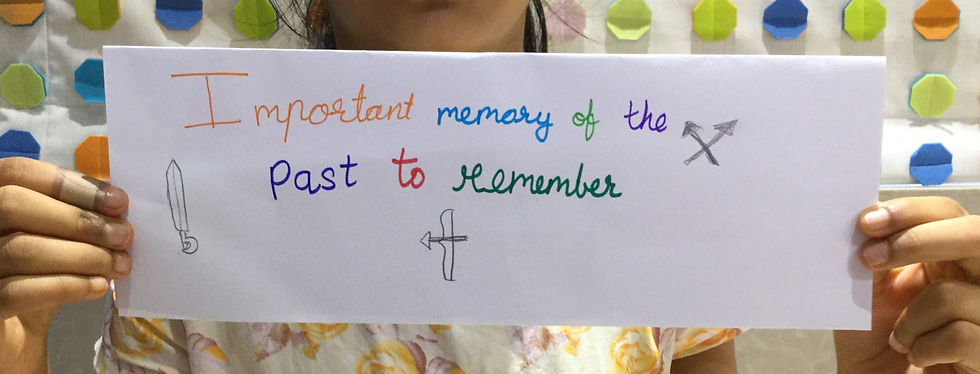 Important memory of the
Past to remember